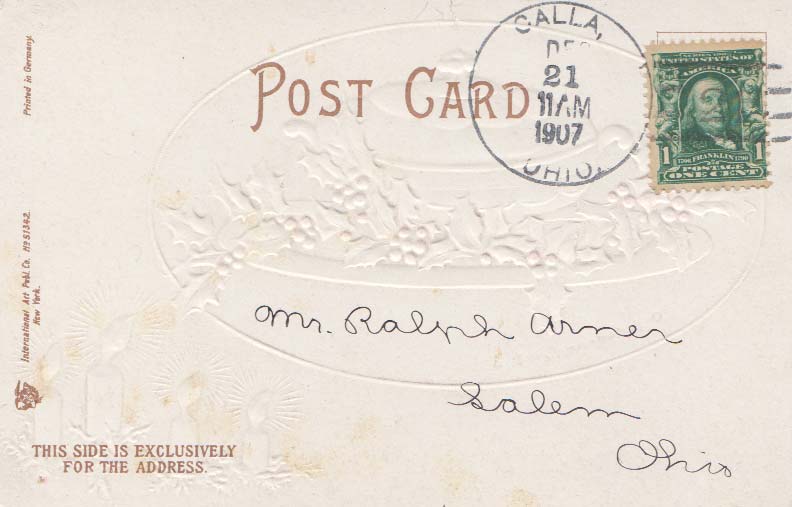 Printed in Germany.
POST CARD
CALLA,
DEC
21
11AM
1907
OHIO.
UNITED STATES OF
AMERICA
1 1
1706 FRANKLIN 1790
POSTAGE
ONE CENT
International Art Publ. Co. No 51342.
New York.
Mr. Ralph Arner
Salem
Ohio
THIS SIDE IS EXCLUSIVELY
FOR THE ADDRESS.